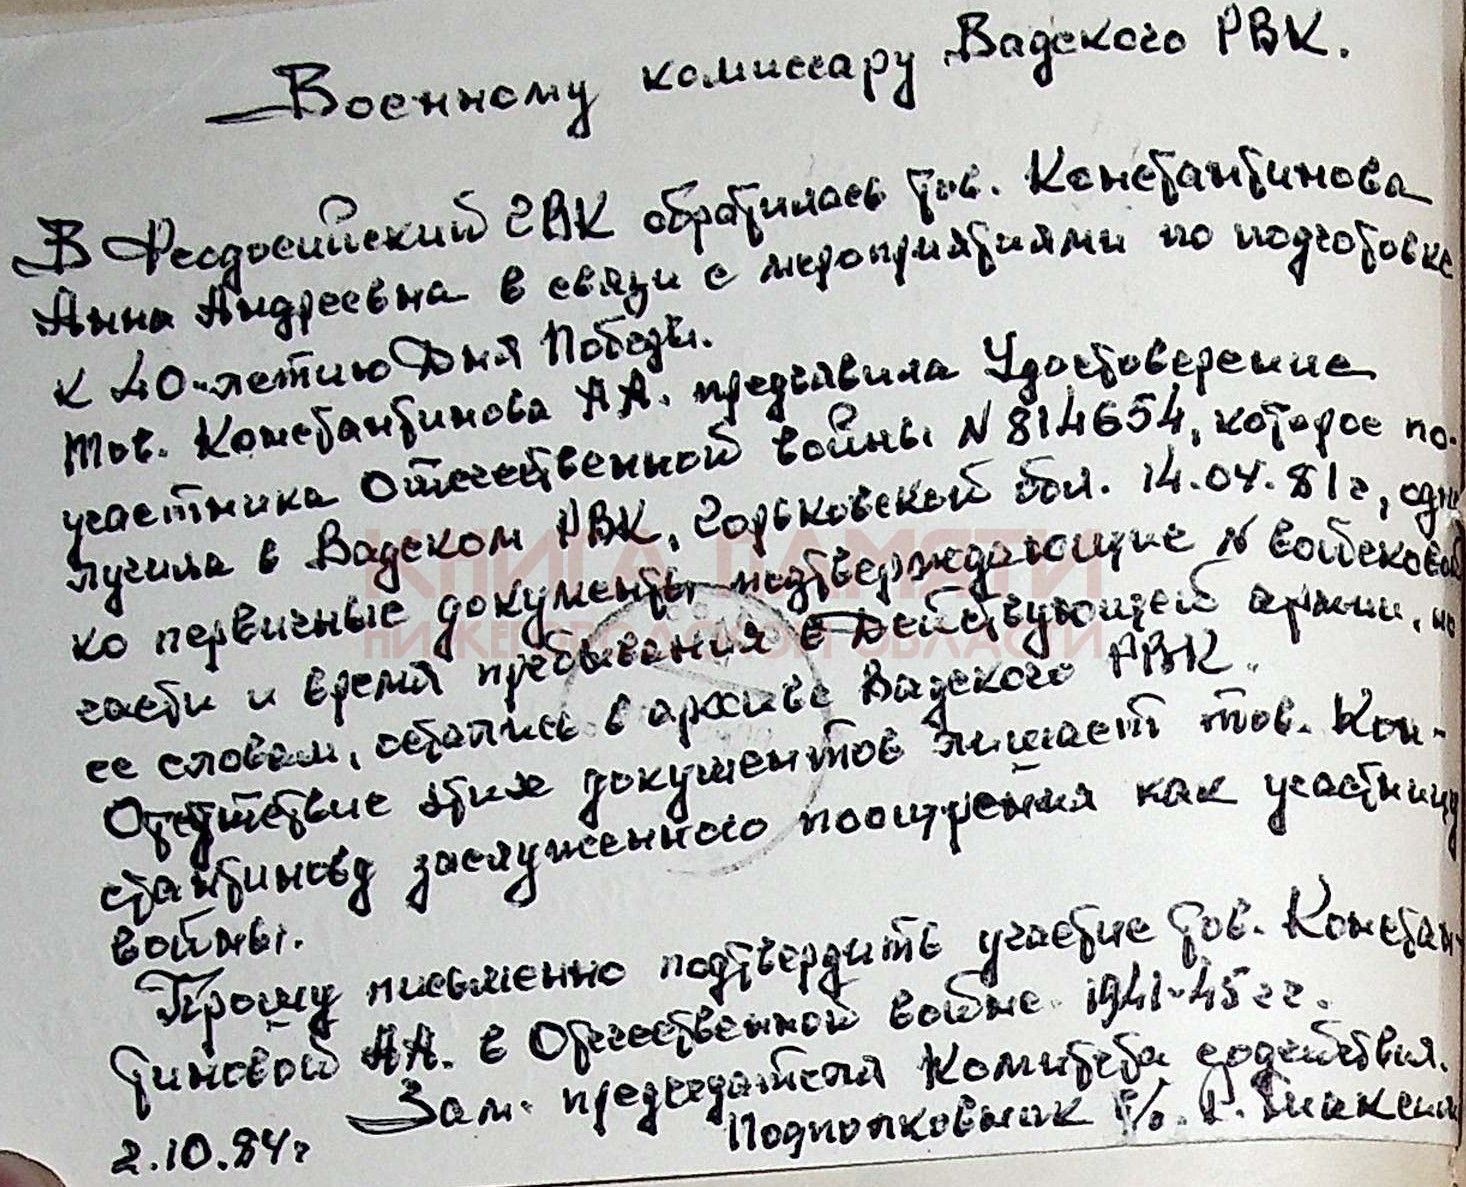 Военному комиссару Вадского РВК.
В Феодосийский ГВК обратилась тов. Константинова
Анна Андреевна в связи с мероприятиями по подготовке
к 40-летию Дня Победы.
Тов. Константинова А А. предъявила Удостоверение
участника Отечественной войны N 814654, которое по-
лучила в Вадском РВК, Горьковской обл. 14.04.81г, одна
ко первичные документы подтверждающие N войсковой
части и время пребывания в Действующей армии, по
ее словам, остались в архиве Вадского РВК.
Отсутствие этих документов лишает тов. Кон-
стантинову заслуженного поощрения как участницу
войны.
Прошу письменно подтвердить участие тов. Констан-
тиновой А А. в Отечественной войне 1941-45 гг.
Зам. председателя Комитета содействия.
Подполковник Р.
2.10.84г
КНИГА ПАМЯТИ
НИЖЕГОРОДСКОЙ ОБЛАСТИ